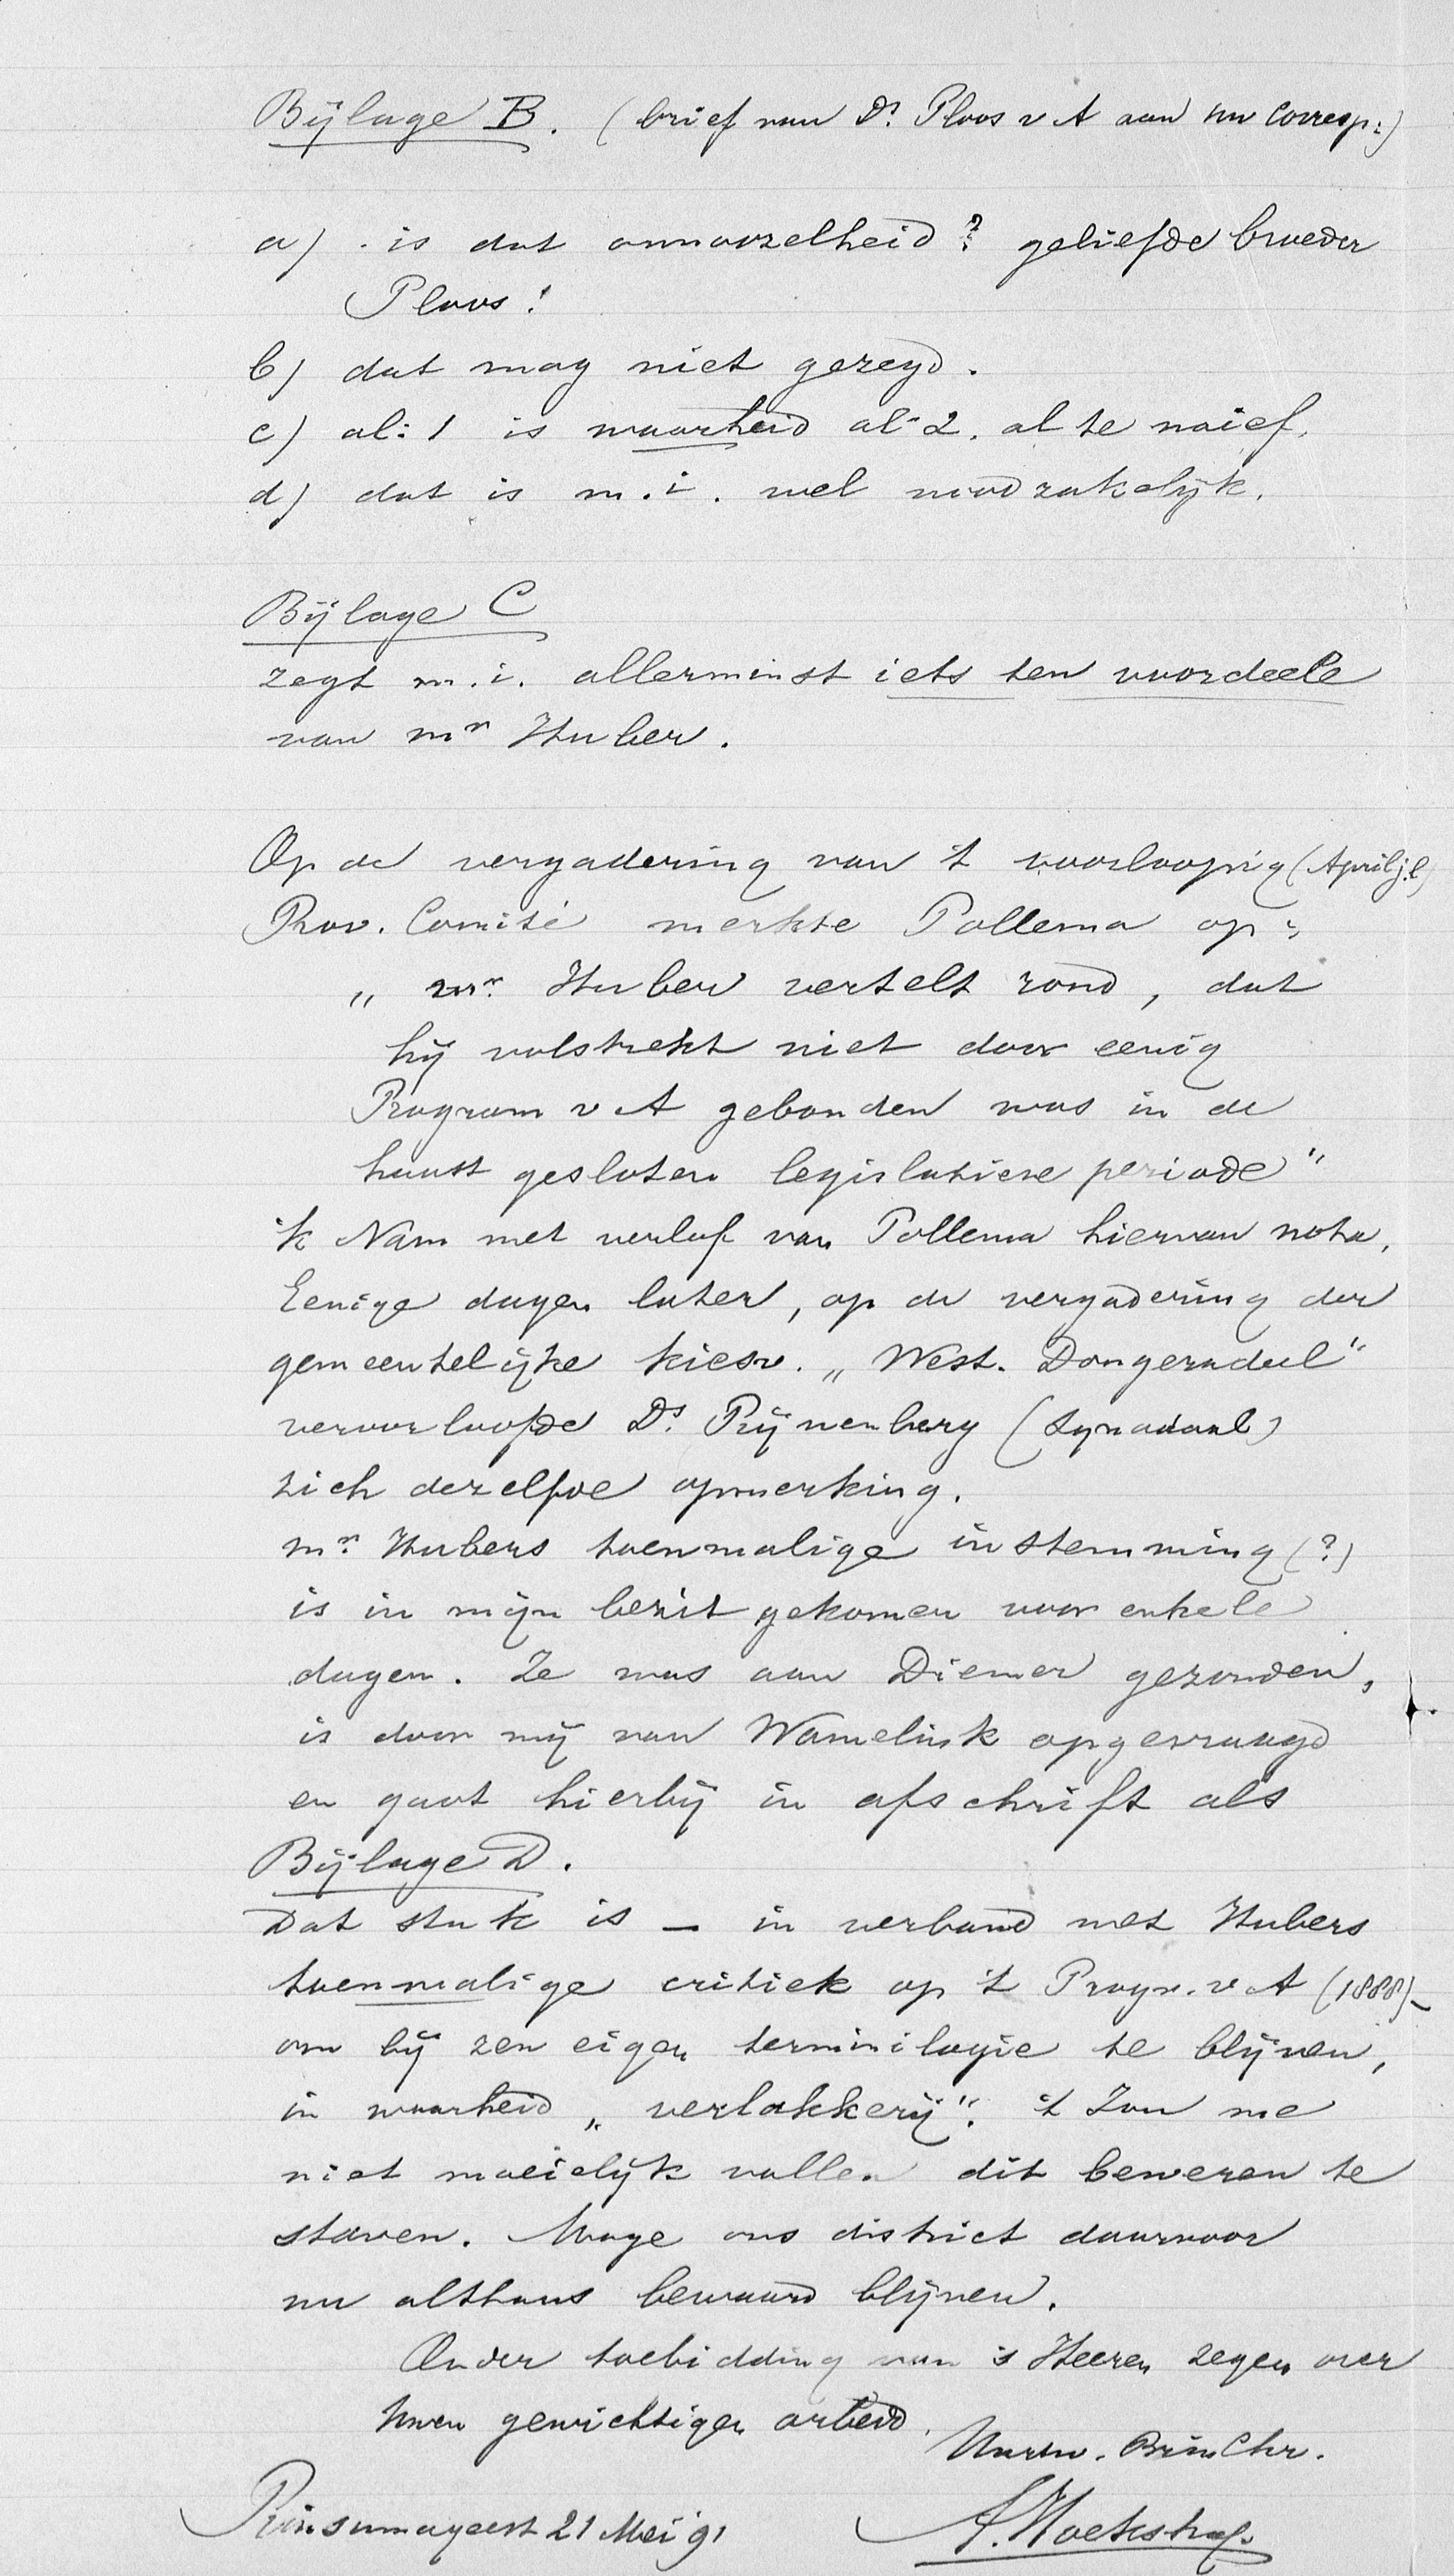 Bijlage B. (brief van Ds. Ploos v A aan uw corresp:)
a) . is dat onnoozelheid? geliefde broeder
Ploos!
b) dat mag niet gezegd.
c) al: 1 is waarheid al 2. al te naief.
d) dat is m.i. wel noodzakelijk.
Bijlage C
zegt m.i. allerminst iets ten voordeele
van mr Huber.
Op de vergadering van 't voorloopig (April j.l)
Prov. Comité merkte Pollema op:
„mr. Huber vertelt rond, dat
hij volstrekt niet door eenig
Program v A gebonden was in de
haast gesloten legislatieve periode"
ik Nam met verlof van Pollema hiervan nota.
Eenige dagen later, op de vergadering der
gemeentelijke kiesv. „West. Dongeradeel"
veroorloofde Ds. Pijnenberg (Synodaal)
zich dezelfde opmerking.
mr. Hubers toenmalige instemming (?)
is in mijn bezit gekomen voor enkele
dagen. Ze was aan Diemer gezonden,
is door mij van Wamelink opgevraagd
en gaat hierbij in afschrift als
Bijlage D.
Dat stuk is — in verband met Hubers
toenmalige critiek op 't Progr. v A (1888) —
om bij zen eigen terminilogie te blijven,
in waarheid „verlakkerij". 't Zou me
niet moeielijk vallen dit beweren te
staven. Moge ons district daarvoor
nu althans bewaard blijven.
Onder toebidding van 's Heeren zegen over
Uwen gewichtigen arbeid.
Uw in Chr.
Rinsumageest 21 Mei 91
A. Hoekstra